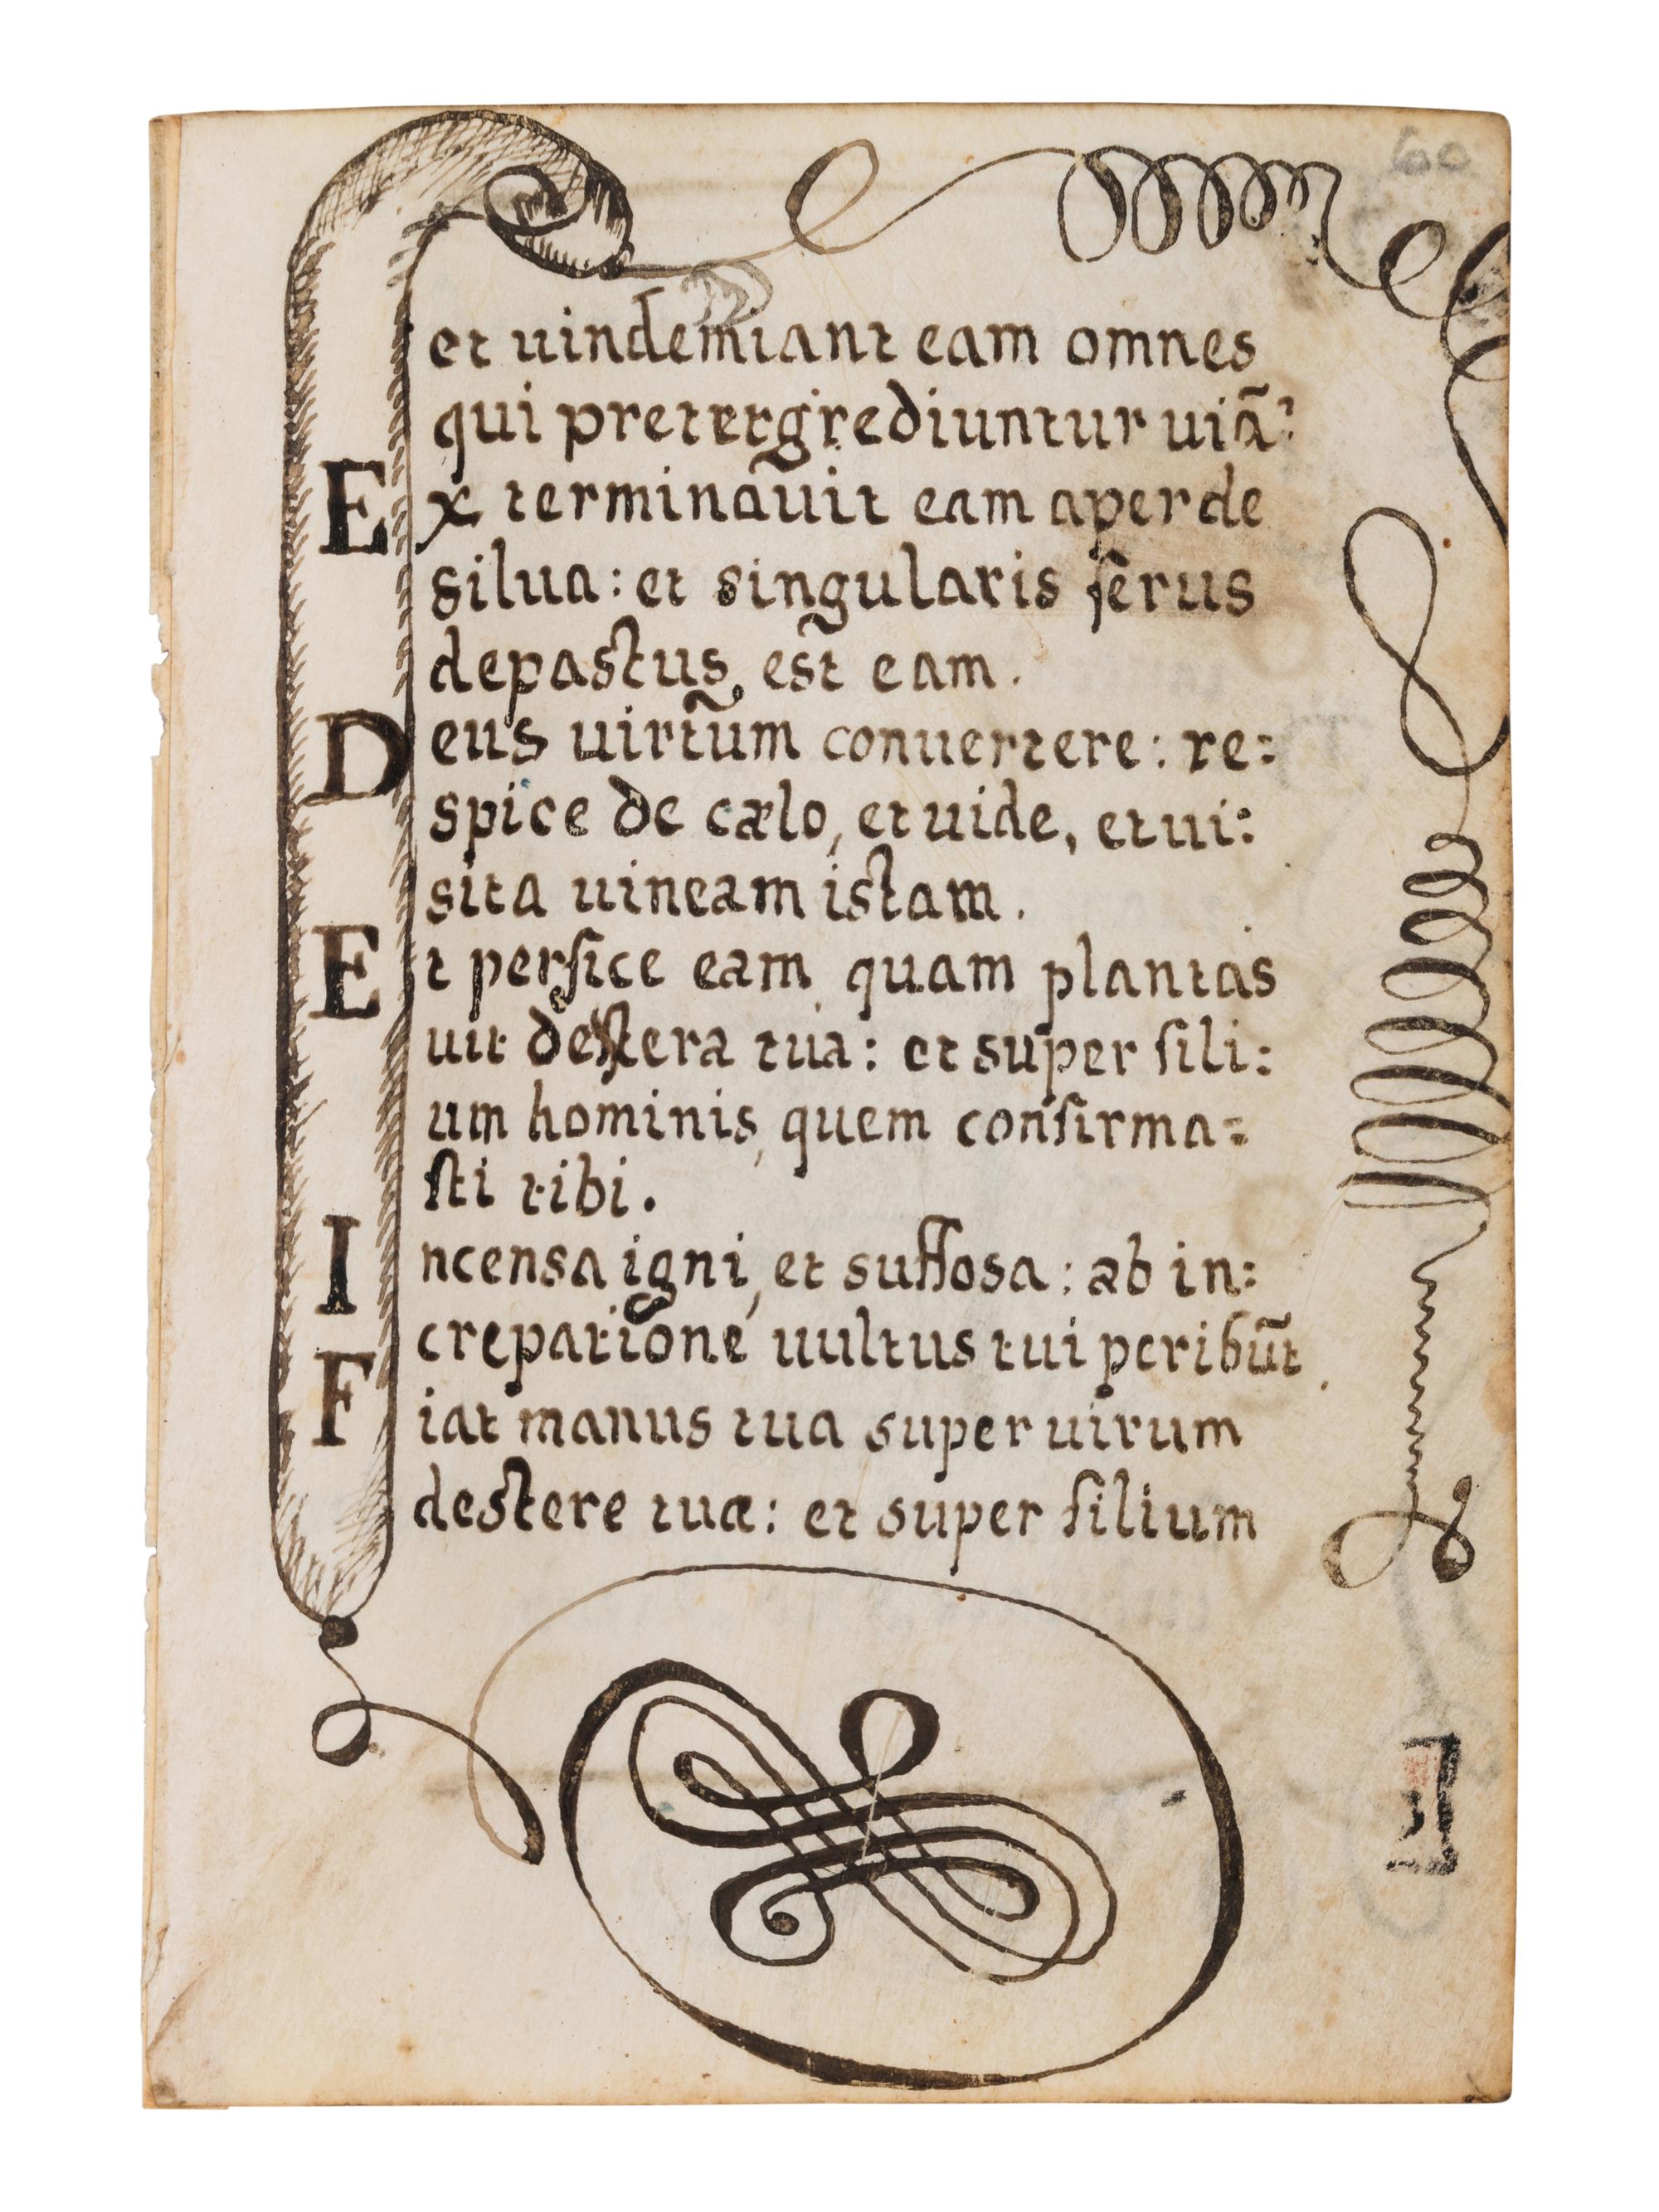 60
72
et uindemiant eam omnes
qui pretergrediuntur uiã?
Ex terminauit eam aper de
silua: et singularis ferus
depastus, est eam.
Deus uirtũm conuertere: re=
spice de cælo, et uide, et ui:
sita uineam istam.
Et perfice eam quam plantas
uit destera tua: et super fili:
um hominis, quem confirma=
sti tibi.
Incensa igni, et suffosa: ab in:
crepatione uultus tui peribũt.
Fiat manus tua super uirum
destere tuæ: et super filium